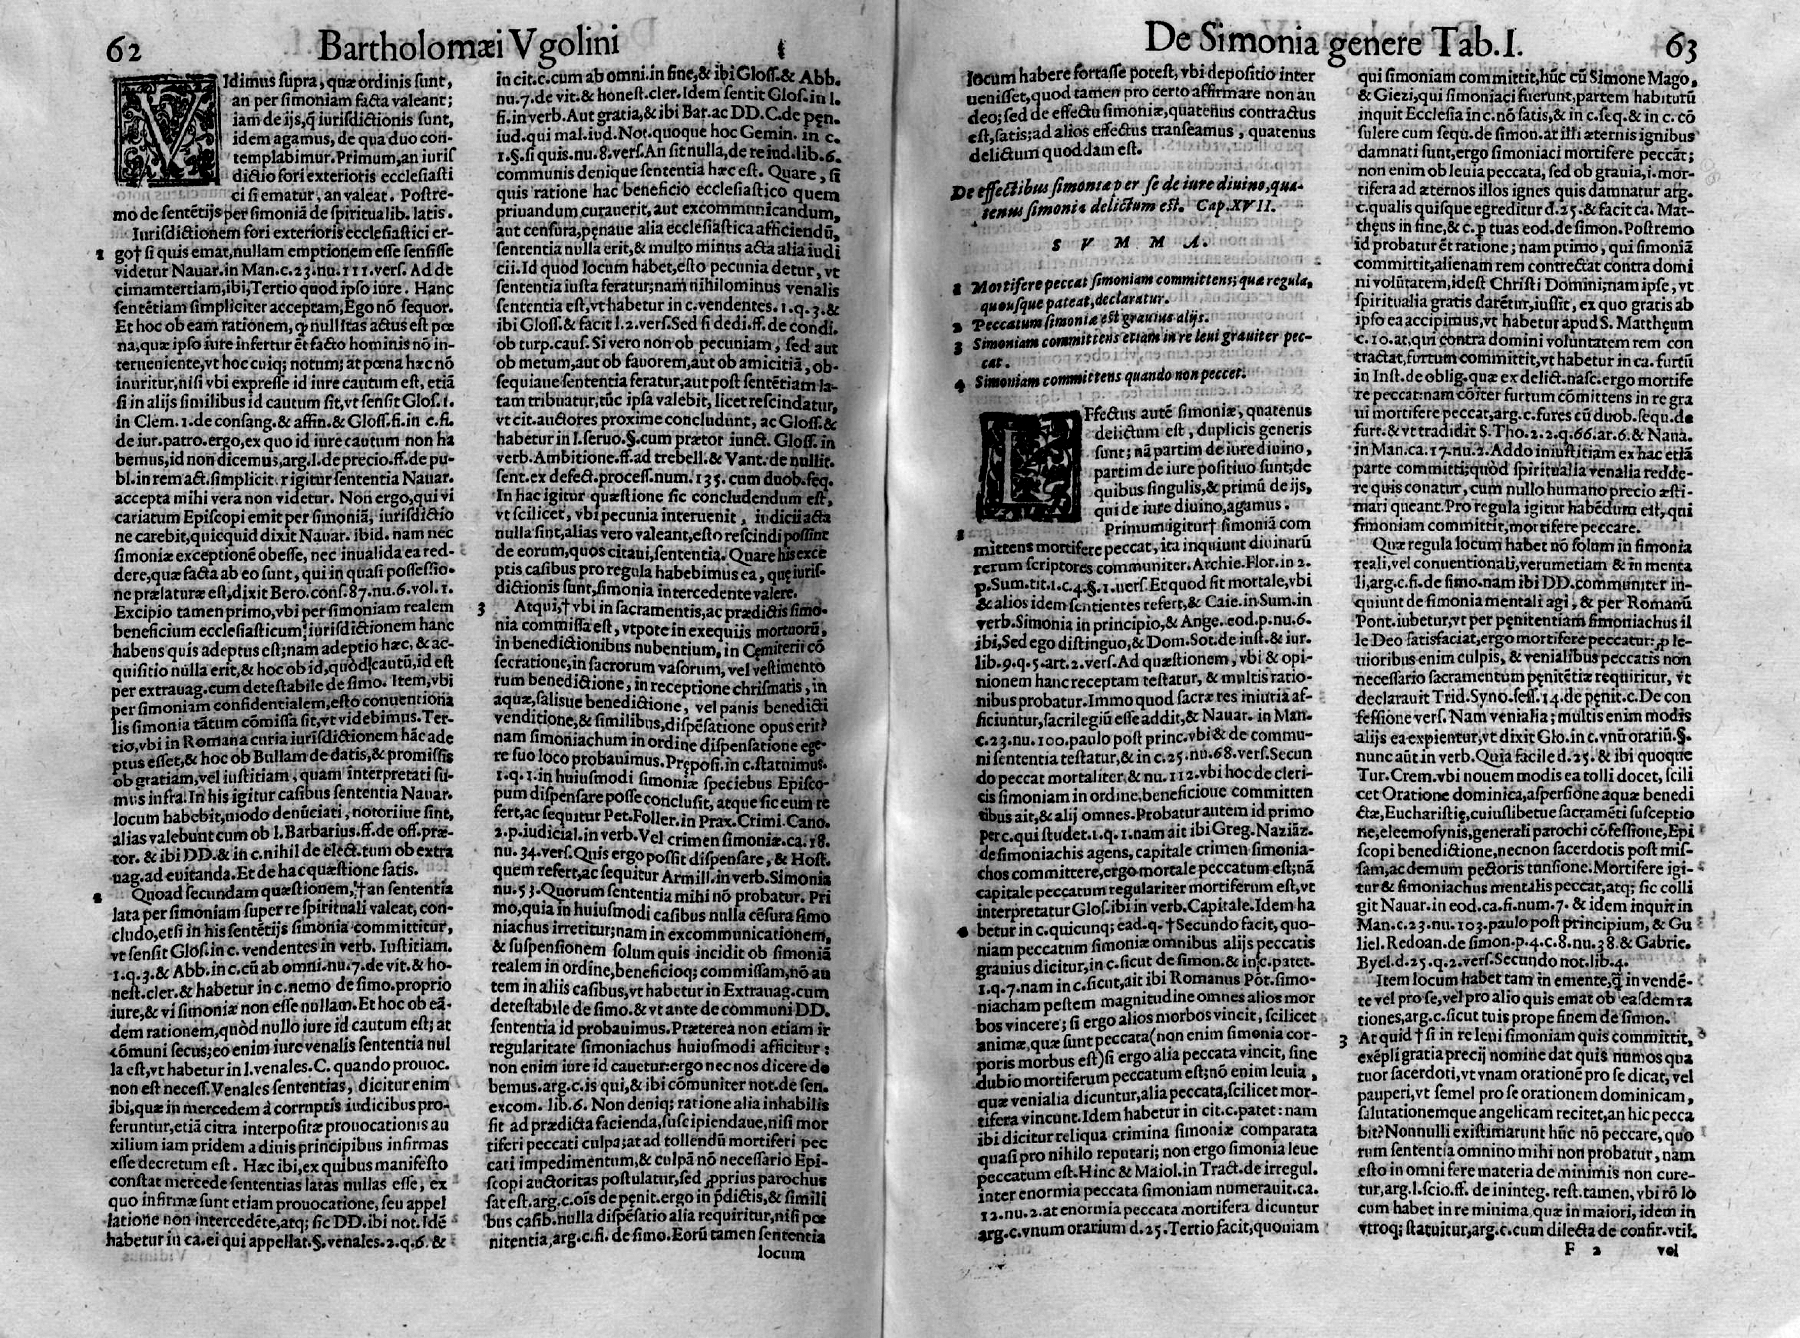 62 Bartholomæi Vgolini
VIdimus supra, quæ ordinis sunt,
an per simoniam facta valeant;
iam de ijs, q̃ iurisdictionis sunt,
idem agamus, de qua duo con-
templabimur. Primum, an iuris
dictio fori exterioris ecclesiasti
ci si ematur, an valeat. Postre-
mo de sentẽtijs per simoniã de spiritualib. latis.
Iurisdictionem fori exterioris ecclesiastici er-
1 go† si quis emat, nullam emptionem esse sensisse
videtur Nauar. in Man. c. 23. nu. 111. vers. Ad de
cimamtertiam, ibi, Tertio quod ipso iure. Hanc
sentẽtiam simpliciter acceptam, Ego nõ sequor.
Et hoc ob eam rationem, ꝙ nullitas actus est pœ
na, quæ ipso iure infertur ẽt facto hominis nõ in-
terueniente, vt hoc cuiq; notum; at pœna hæc nõ
inuritur, nisi vbi expresse id iure cautum est, etiã
si in alijs similibus id cautum sit, vt sensit Glos. 1.
in Clem. 1. de consang. & affin. & Gloss. fi. in c. fi.
de iur. patro. ergo, ex quo id iure cautum non ha
bemus, id non dicemus, arg. l. de precio. ff. de pu-
bl. in rem act. simplicit. rigitur sententia Nauar.
accepta mihi vera non videtur. Non ergo, qui vi
cariatum Episcopi emit per simoniã, iurisdictio
ne carebit, quicquid dixit Nauar. ibid. nam nec
simoniæ exceptionẽ obesse, nec inualida ea red-
dere, quæ facta ab eo sunt, qui in quasi possessio-
ne prælaturæ est, dixit Bero. cons. 87. nu. 6. vol. 1.
Excipio tamen primo, vbi per simoniam realem
beneficium ecclesiasticum; iurisdictionem hanc
habens quis adeptus est; nam adeptio hæc, & ac-
quisitio nulla erit, & hoc ob id, quòd cautũ, id est
per extrauag. cum detestabile de simo. Item, vbi
per simoniam confidentialem, esto conuentiona
lis simonia tãtum cõmissa sit, vt videbimus. Ter-
tio, vbi in Romana curia iurisdictionem hãc ade
ptus esset, & hoc ob Bullam de datis, & promissis
ob gratiam, vel iustitiam, quam interpretati su-
mus infra. In his igitur casibus sententia Nauar.
locum habebit, modo denũciati, notoriiue sint,
alias valebunt cum ob l. Barbarius. ff. de off. præ-
tor. & ibi DD. & in c. nihil de elect. tum ob extra
uag. ad euitanda. Et de hac quæstione satis.
2 Quoad secundam quæstionem, † an sententia
lata per simoniam super re spirituali valeat, con-
cludo, etsi in his sentẽtijs simonia committitur,
vt sensit Glos. in c. vendentes in verb. Iustitiam.
1. q. 3. & Abb. in c. cũ ab omni. nu. 7. de vit. & ho-
nest. cler. & habetur in c. nemo de simo. proprio
iure, & vi simoniæ non esse nullam. Et hoc ob eã-
dem rationem, quòd nullo iure id cautum est; at
cõmuni secus; eo enim iure venalis sententia nul
la est, vt habetur in l. venales. C. quando prouoc.
non est necess. Venales sententias, dicitur enim
ibi, quæ in mercedem à corruptis iudicibus pro-
feruntur, etiã citra interpositæ prouocationis au
xilium iam pridem a diuis principibus infirmas
esse decretum est. Hæc ibi, ex quibus manifesto
constat mercede sententias latas nullas esse, ex
quo infirmæ sunt etiam prouocatione, seu appel
latione non intercedẽte, atq; sic DD. ibi not. Idẽ
habetur in ca. ei qui appellat. §. venales. 2. q. 6. &
in cit. c. cum ab omni. in fine, & ibi Gloss. & Abb.
nu. 7. de vit. & honest. cler. Idem sentit Glos. in l.
fi. in verb. Aut gratia, & ibi Bar. ac DD. C. de pęn.
iud. qui mal. iud. Not. quoque hoc Gemin. in c.
1. §. si quis. nu. 8. vers. An sit nulla, de re iud. lib. 6.
communis denique sententia hæc est. Quare, si
quis ratione hac beneficio ecclesiastico quem
priuandum curauerit, aut excommunicandum,
aut censura, pęnaue alia ecclesiastica afficiendũ,
sententia nulla erit, & multo minus acta alia iudi
cii. Id quod locum habet, esto pecunia detur, vt
sententia iusta feratur; nam nihilominus venalis
sententia est, vt habetur in c. vendentes. 1. q. 3. &
ibi Gloss. & facit l. 2. vers. Sed si dedi. ff. de condi.
ob turp. caus. Si vero non ob pecuniam, sed aut
ob metum, aut ob fauorem, aut ob amicitiã, ob-
sequiaue sententia feratur, aut post sentẽtiam la-
tam tribuatur, tũc ipsa valebit, licet rescindatur,
vt cit. auctores proxime concludunt, ac Gloss. &
habetur in l. seruo. §. cum prætor iunct. Gloss. in
verb. Ambitione. ff. ad trebell. & Vant. de nullit.
sent. ex defect. process. num. 135. cum duob. seq.
In hac igitur quæstione sic concludendum est,
vt scilicet, vbi pecunia interuenit, iudicii acta
nulla sint, alias vero valeant, esto rescindi possint
de eorum, quos citaui, sententia. Quare his exce
ptis casibus pro regula habebimus ea, quę iuris-
dictionis sunt, simonia intercedente valere.
3 Atqui, † vbi in sacramentis, ac prædictis simo-
nia commissa est, vtpote in exequiis mortuorũ,
in benedictionibus nubentium, in Cęmiterii cõ
secratione, in sacrorum vasorum, vel vestimento
rum benedictione, in receptione chrismatis, in
aquæ, salisue benedictione, vel panis benedicti
venditione, & similibus, dispẽsatione opus erit?
nam simoniachum in ordine dispensatione ege-
re suo loco probauimus. Pręposi. in c. statuimus.
1. q. 1. in huiusmodi simoniæ speciebus Episco-
pum dispensare posse conclusit, atque sic eum re
fert, ac sequitur Pet. Foller. in Prax. Crimi. Cano.
2. p. iudicial. in verb. Vel crimen simoniæ. ca. 18.
nu. 34. vers. Quis ergo possit dispensare, & Host.
quem refert, ac sequitur Armill. in verb. Simonia
nu. 53. Quorum sententia mihi nõ probatur. Pri
mo, quia in huiusmodi casibus nulla cẽsura simo
niachus irretitur; nam in excommunicationem,
& suspensionem solum quis incidit ob simoniã
realem in ordine, beneficioq; commissam, nõ au
tem in aliis casibus, vt habetur in Extrauag. cum
detestabile de simo. & vt ante de communi DD.
sententia id probauimus. Præterea non etiam ir
regularitate simoniachus huiusmodi afficitur:
non enim iure id cauetur: ergo nec nos dicere de
bemus. arg. c. is qui, & ibi cõmuniter not. de sen.
excom. lib. 6. Non deniq; ratione alia inhabilis
sit ad prædicta facienda, suscipiendaue, nisi mor
tiferi peccati culpa; at ad tollendũ mortiferi pec
cati impedimentum, & culpã nõ necessario Epi-
scopi auctoritas postulatur, sed ꝓprius parochus
sat est. arg. c. oĩs de pęnit. ergo in p̃dictis, & simili
bus casib. nulla dispẽsatio alia requiritur, nisi pœ
nitentia, arg. c. fi. de simo. Eorũ tamen sententia
locum
De Simonia genere Tab. I. 63
locum habere fortasse potest, vbi depositio inter
uenisset, quod tamen pro certo affirmare non au
deo; sed de effectu simoniæ, quatenus contractus
est, satis; ad alios effectus transeamus, quatenus
delictum quoddam est.
De effectibus simoniæ per se de iure diuino, qua-
tenus simonia delictum est. Cap. XVII.
SVMMA.
1 Mortifere peccat simoniam committens; quæ regula,
quousque pateat, declaratur.
2 Peccatum simoniæ est grauius alijs.
3 Simoniam committens etiam in re leui grauiter pec-
cat.
4 Simoniam committens quando non peccet.
EFfectus autẽ simoniæ, quatenus
delictum est, duplicis generis
sunt; nã partim de iure diuino,
partim de iure positiuo sunt; de
quibus singulis, & primũ de ijs,
qui de iure diuino, agamus.
1 Primum igitur† simoniã com
mittens mortifere peccat, ita inquiunt diuinarũ
rerum scriptores communiter. Archie. Flor. in 2.
p. Sum. tit. 1. c. 4. §. 1. vers. Et quod sit mortale, vbi
& alios idem sentientes refert, & Caie. in Sum. in
verb. Simonia in principio, & Ange. eod. p. nu. 6.
ibi, Sed ego distinguo, & Dom. Sot. de inst. & iur.
lib. 9. q. 5. art. 2. vers. Ad quæstionem, vbi & opi-
nionem hanc receptam testatur, & multis ratio-
nibus probatur. Immo quod sacræ res iniuria af-
ficiuntur, sacrilegiũ esse addit, & Nauar. in Man.
c. 23. nu. 100. paulo post princ. vbi & de commu-
ni sententia testatur, & in c. 25. nu. 68. vers. Secun
do peccat mortaliter, & nu. 112. vbi hoc de cleri-
cis simoniam in ordine, beneficioue committen
tibus ait, & alij omnes. Probatur autem id primo
per c. qui studet. 1. q. 1. nam ait ibi Greg. Naziãz.
de simoniachis agens, capitale crimen simonia-
chos committere, ergo mortale peccatum est; nã
capitale peccatum regulariter mortiferum est, vt
interpretatur Glos. ibi in verb. Capitale. Idem ha
2 betur in c. quicunq; ead. q. †Secundo facit, quo-
niam peccatum simoniæ omnibus alijs peccatis
grauius dicitur, in c. sicut de simon. & in c. patet.
1. q. 7. nam in c. sicut, ait ibi Romanus Põt. simo-
niacham pestem magnitudine omnes alios mor
bos vincere; si ergo alios morbos vincit, scilicet
animæ, quæ sunt peccata (non enim simonia cor-
poris morbus est) si ergo alia peccata vincit, sine
dubio mortiferum peccatum est; nõ enim leuia,
quæ venialia dicuntur, alia peccata, scilicet mor-
tifera vincunt. Idem habetur in cit. c. patet: nam
ibi dicitur reliqua crimina simoniæ comparata
quasi pro nihilo reputari; non ergo simonia leue
peccatum est. Hinc & Maiol. in Tract. de irregul.
inter enormia peccata simoniam numerauit. ca.
12. nu. 2. at enormia peccata mortifera dicuntur
arg. c. vnum orarium d. 25. Tertio facit, quoniam
qui simoniam committit, hũc cũ Simone Mago,
& Giezi, qui simoniaci fuerunt, partem habiturũ
inquit Ecclesia in c. nõ satis, & in c. seq. & in c. cõ
sulere cum sequ. de simon. at illi æternis ignibus
damnati sunt, ergo simoniaci mortifere peccãt;
non enim ob leuia peccata, sed ob grauia, i. mor-
tifera ad æternos illos ignes quis damnatur arg.
c. qualis quisque egreditur d. 25. & facit ca. Mat-
thęus in fine, & c. ꝑ tuas eod. de simon. Postremo
id probatur ẽt ratione; nam primo, qui simoniã
committit, alienam rem contrectat contra domi
ni volũtatem, idest Christi Domini; nam ipse, vt
spiritualia gratis darẽtur, iussit, ex quo gratis ab
ipso ea accipimus, vt habetur apud S. Matthęum
c. 10. at, qui contra domini voluntatem rem con
tractat, furtum committit, vt habetur in ca. furtũ
in Inst. de oblig. quæ ex delict. nasc. ergo mortife
re peccat: nam cõiter furtum cõmittens in re gra
ui mortifere peccat, arg. c. fures cũ duob. sequ. de
furt. & vt tradidit S. Tho. 2. 2. q. 66. ar. 6. & Naua.
in Man. ca. 17. nu. 2. Addo iniustitiam ex hac etiã
parte committi; quòd spiritualia venalia redde-
re quis conatur, cum nullo humano precio æsti-
mari queant. Pro regula igitur habẽdum est, qui
simoniam committit, mortifere peccare.
Quæ regula locum habet nõ solum in simonia
reali, vel conuentionali, verumetiam & in menta
li, arg. c. fi. de simo. nam ibi DD. communiter in-
quiunt de simonia mentali agi, & per Romanũ
Pont. iubetur, vt per penitentiam simoniachus il
le Deo satisfaciat, ergo mortifere peccatur: ꝓ le-
uioribus enim culpis, & venialibus peccatis non
necessario sacramentum pęnitẽtiæ requiritur, vt
declarauit Trid. Syno. sess. 14. de pęnit. c. De con
fessione vers. Nam venialia; multis enim modis
alijs ea expientur, vt dixit Glo. in c. vnũ orariũ. §.
nunc aũt. in verb. Quia facile d. 25. & ibi quoque
Tur. Crem. vbi nouem modis ea tolli docet, scili
cet Oratione dominica, aspersione aquæ benedi
ctæ, Eucharistię, cuiuslibetue sacramẽti susceptio
ne, eleemosynis, generali parochi cõfessione, Epi
scopi benedictione, necnon sacerdotis post mis-
sam, ac demum pectoris tunsione. Mortifere igi-
tur & simoniachus mentalis peccat, atq; sic colli
git Nauar. in eod. ca. fi. num. 7. & idem inquit in
Man. c. 23. nu. 103. paulo post principium, & Gu
liel. Redoan. de simon. p. 4. c. 8. nu. 38. & Gabric.
Byel. d. 25. q. 2. vers. Secundo not. lib. 4.
Item locum habet tam in emente, q̃ in vendẽ-
te vel pro se, vel pro alio quis emat ob easdem ra
tiones, arg. c. sicut tuis prope finem de simon.
3 At quid † si in re leui simoniam quis committit,
exẽpli gratia precij nomine dat quis numos qua
tuor sacerdoti, vt vnam orationẽ pro se dicat, vel
pauperi, vt semel pro se orationem dominicam,
salutationemque angelicam recitet, an hic pecca
bit? Nonnulli existimarunt hũc nõ peccare, quo
rum sententia omnino mihi non probatur, nam
esto in omni fere materia de minimis non cure-
tur, arg. l. scio. ff. de in integ. rest. tamen, vbi rõ lo
cum habet in re minima, quæ in maiori, idem in
vtroq; statuitur, arg. c. cum dilecta de confir. vtil.
F 2 vel